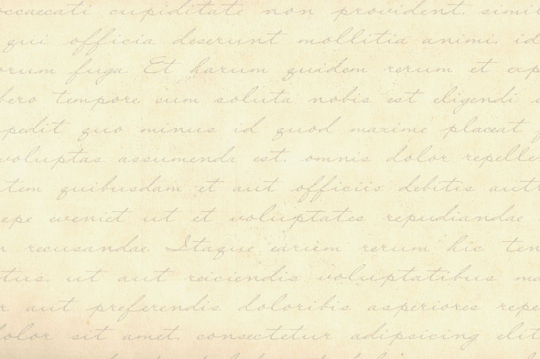 occaecati cupiditate non provident, simil
qui officia deserunt mollitia animi, id
orum fuga. Et harum quidem rerum et exp
bero tempore cum soluta nobis est eligendi
pedit quo minus id quod maxime placeat f
voluptas assumenda est, omnis dolor repelle
tem quibusdam et aut officiis debitis aut
epe eveniet ut et voluptates repudiandae
n recusandae. Itaque earum rerum hic ten
tus, ut aut reiciendis voluptatibus ma
r aut preferendis doloribis asperiores repe
dolor sit amet, consectetur adipisicing elit